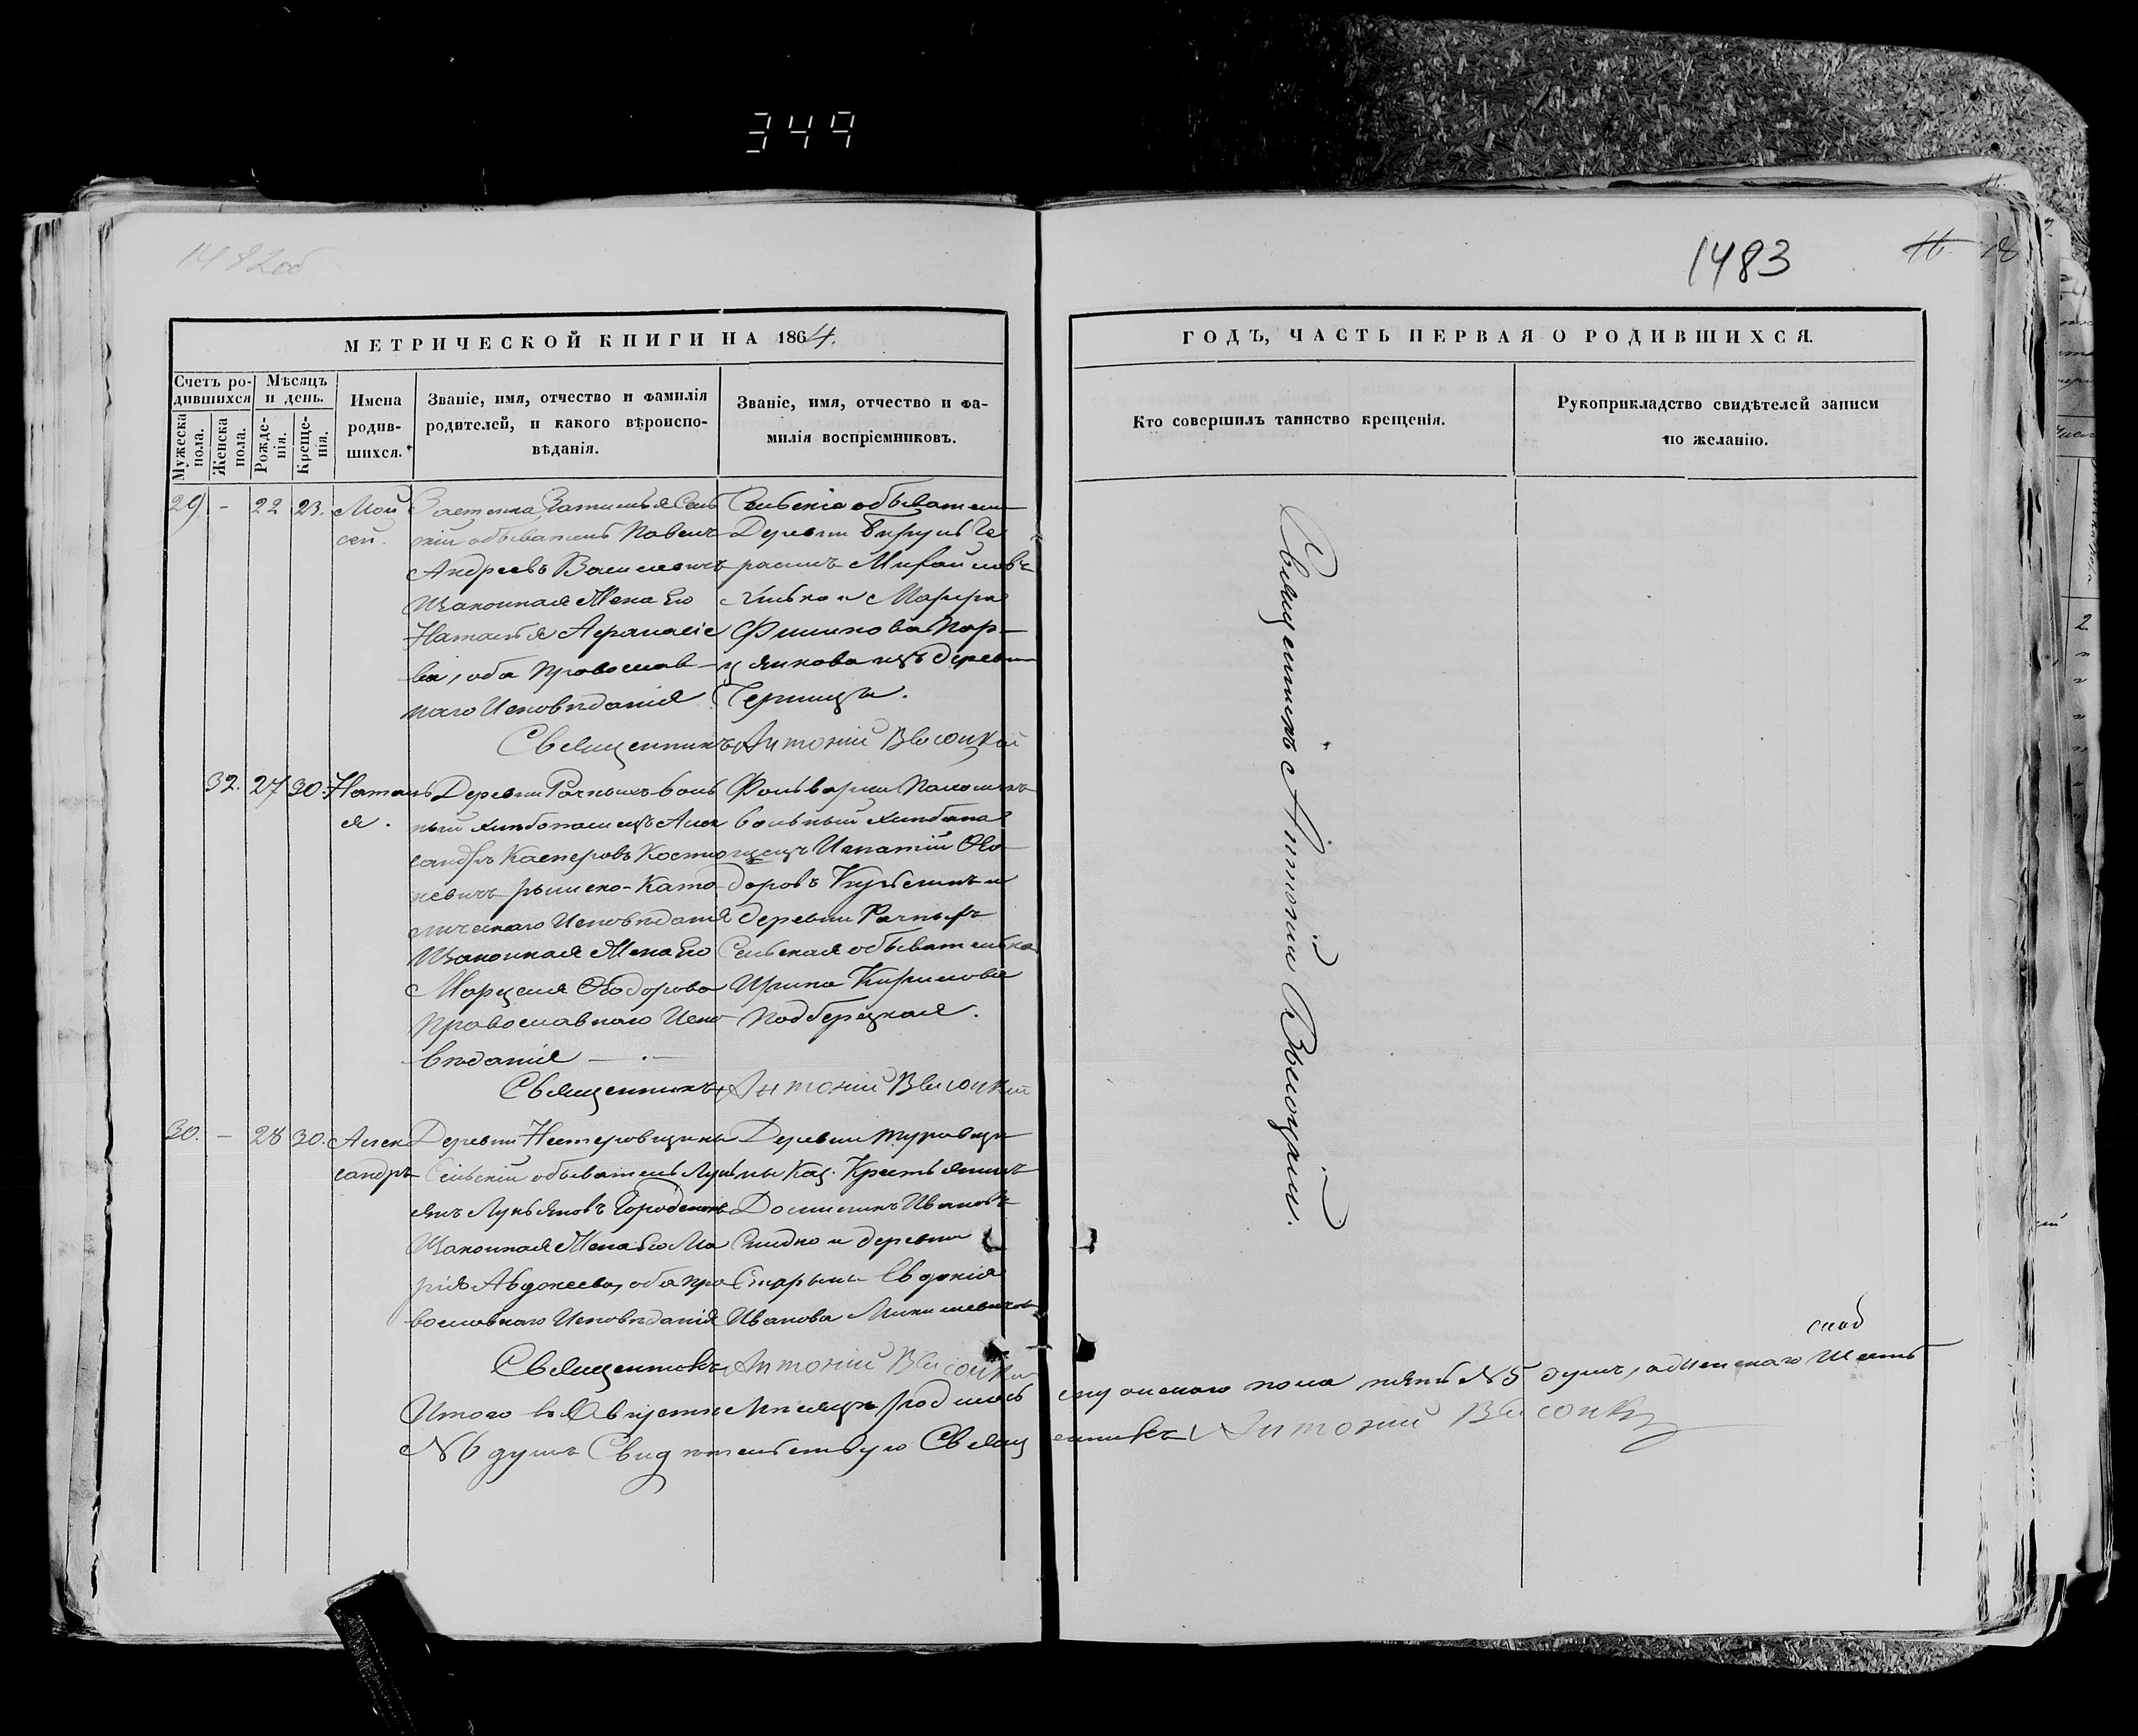 349
1482об
1483
18
МЕТРИЧЕСКОЙ КНИГИ НА 1864.
ГОДЪ, ЧАСТЬ ПЕРВАЯ О РОДИВШИХСЯ.
Счетъ ро-
дившихся
Мужеска
пола.
Женска
пола.
Мѣсяцъ
и день.
Рожде-
нія.
Креще-
нія.
Имена
родив-
шихся.
Званіе, имя, отчество и фамилія
родителей, и какого вѣроиспо-
вѣданія.
Званіе, имя, отчество и фа-
милія воспріемниковъ.
Кто совершилъ таинство крещенія.
Рукоприкладство свидѣтелей записи
по желанію.
29. - 22 23.
Мои
сей.
Застенка Затишья Сель
скій обыватель Павелъ
Андреевъ Василевичъ
Изаконная Жена Его
Наталья Афанасіе
ва, оба Православ-
наго Исповѣданія
Сельскіе обыватели
Деревни
расимъ Михайловъ
и Марѳа
Филипова Пар-
цянкова изъ деревни
Священникъ Антоній Высоцкій
32. 27 30.
Наталь
я.
Деревни Рачныхъ воль
ный хлѣбопашецъ Алек
сандръ Касперовъ Костю
кевичъ римско-Като
лическаго Исповѣданія
Изаконная Жена Его
Марцеля Ѳеодорова
Православнаго Испо
вѣданія
Фольварка
вольный хлѣбопа
шецъ Игнатій Ѳео
доровъ и
деревни Рачныхъ
Сельская обывателька
Ирина Кирилова
Подберецкая.
Священникъ Антоній Высоцкій
30. - 28 30.
Алек
сандръ
Деревни Нестеровщины
Сельскій обыватель Лукь
янъ Лукьяновъ Городенокъ
Изаконная Жена Его Ма
рія Авджеева, оба пра
вославнаго Исповѣданія
Деревни Туровщи
ны Каз. Крестьянинъ
Доминикъ Ивановъ
и деревни
Евдокія
Иванова
Священникъ Антоній Высоцкій
Итого въ Августѣ Мѣсяцѣ родилось мужескаго пола пять №5 душъ, а женскаго шесть
№6 душъ Свидѣтельствую Священникъ Антоній Высоцкій
Священникъ Антоній Высоцкій.